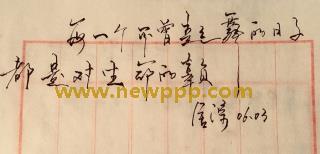 每一个不曾起舞的日子
都是对生命的辜负
www.newppp.com
06.03